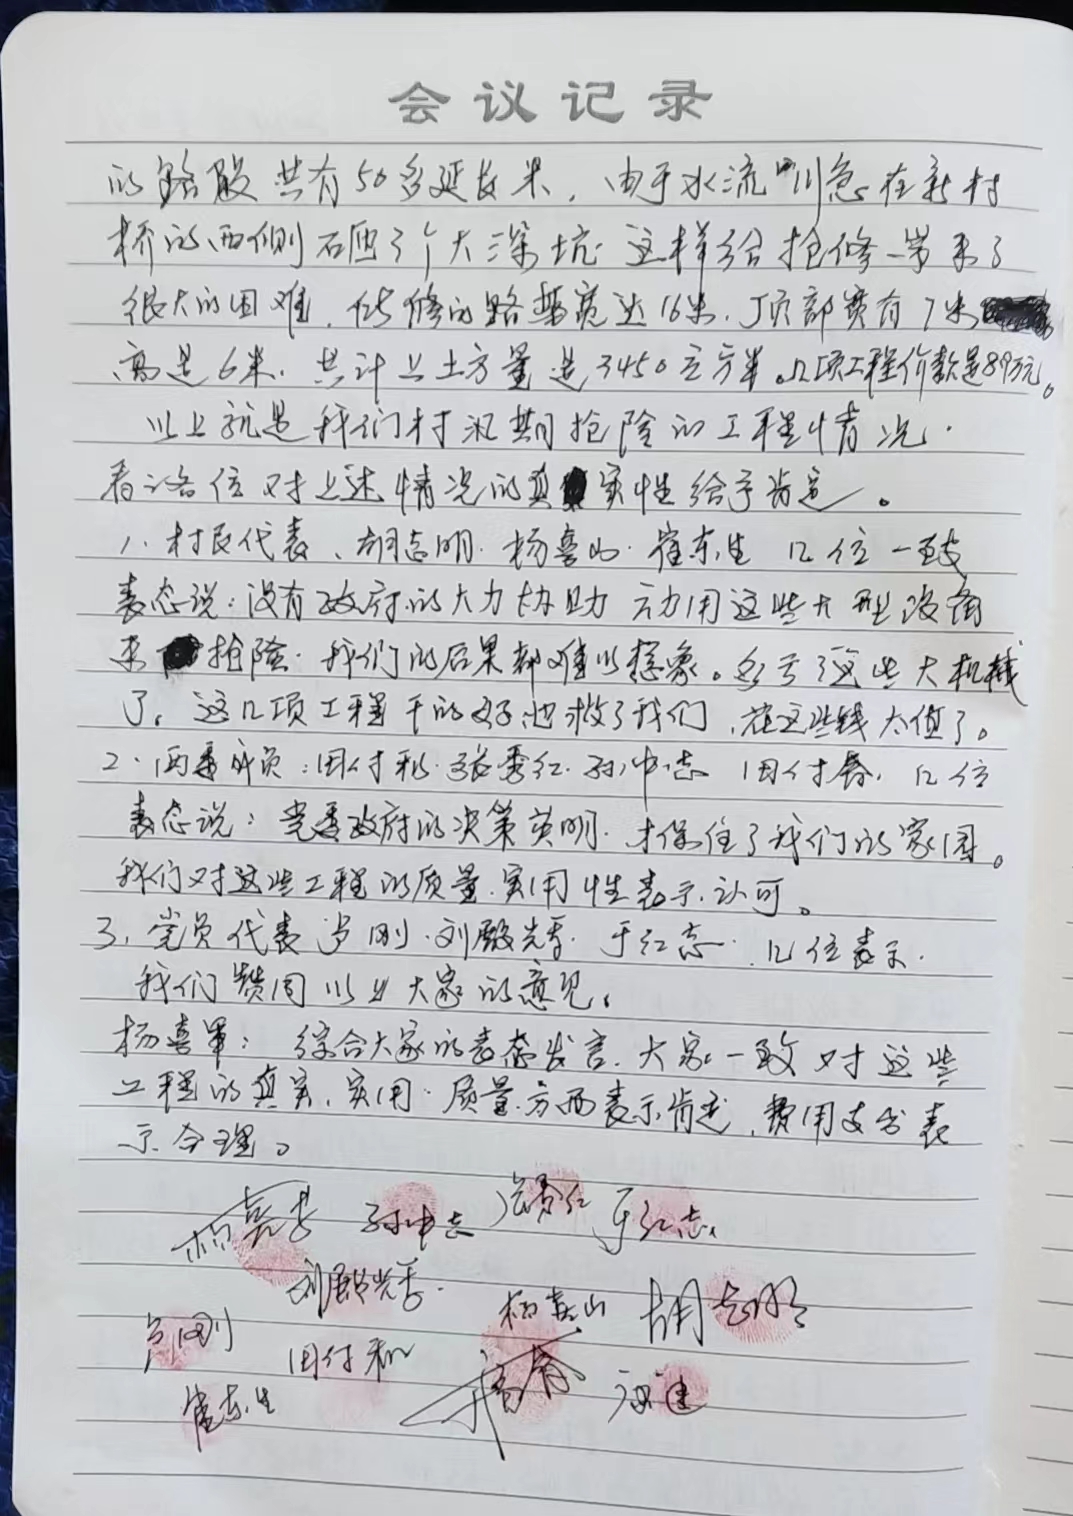 会议记录
的路段共有50多延长米，由于水流川急。在新村
桥的西侧石画了个大深坑 这样给抢修带来了
很大的困难，修的路基宽达16米，顶部宽有7米
高是6米，共计上土方量是3450立方米。几项工程价款是89万元。
以上就是我们村汛期抢险的工程情况.
看各位对上述情况的真实性给予肯定。
1、村民代表、胡志明、杨喜山、崔东生 几位一致
表态说：没有政府的大力协助 动用这些大型设备
来抢险，我们的后果都难以想象。多亏了这些大机械
了。这几项工程干的好，也救了我们，花这些钱太值了。
2、两委成员：田付利、张秀红、孙中志 田付春，几位
表态说：党委政府的决策英明，才保住了我们的家园。
我们对这些工程的质量、实用性表示认可。
3、党员代表 卢刚、刘殿光、于红志、几位表示.
我们赞同以上大家的意见。
杨喜军： 综合大家的表态发言，大家一致对这些
工程的真实、实用、质量方面表示肯定，费用支出表
示合理。
孙中志 张秀红 于红志
刘殿光
杨喜山 胡志明
卢刚 田付利
崔东生